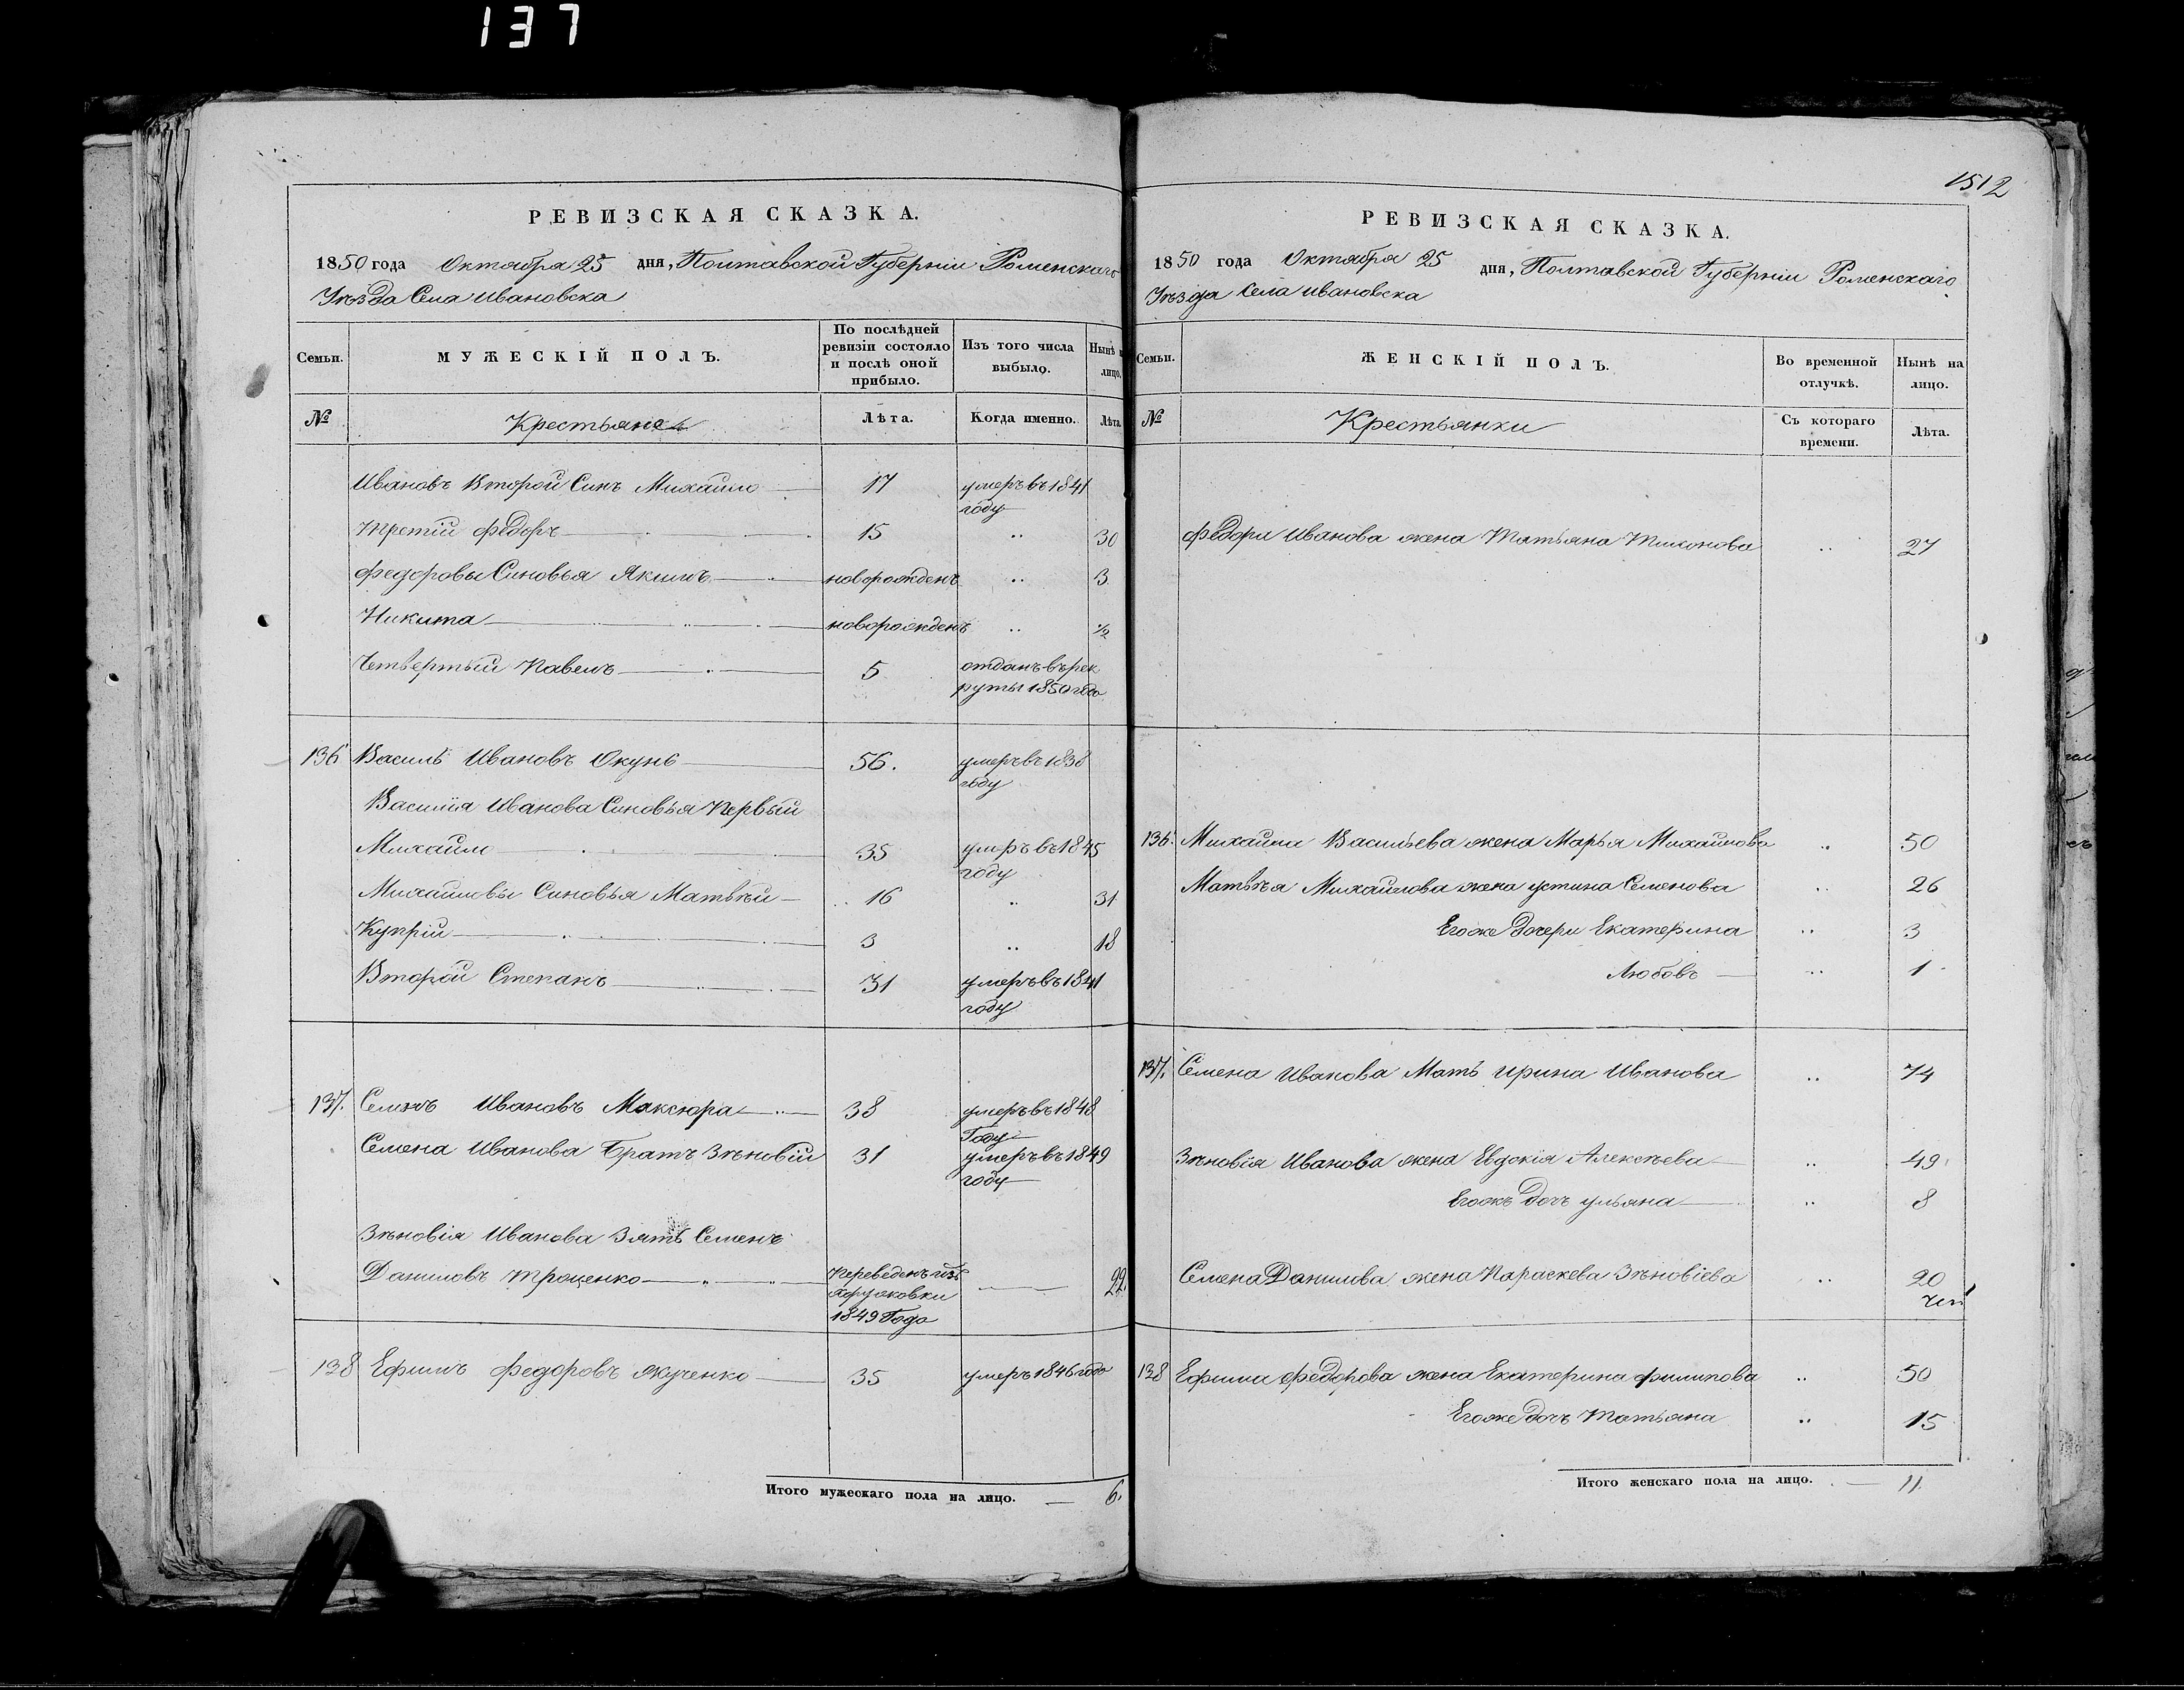 137
1512
РЕВИЗСКАЯ СКАЗКА.
1850 года Октября 25 дня, Полтавской Губерніи Роменскаго
Уѣзда Села Ивановска
Семьи. МУЖЕСКІЙ ПОЛЪ. По послѣдней ревизіи состояло и послѣ оной прибыло. Изъ того числа выбыло. Нынѣ лицо,
№ Крестьяне Лѣта. Когда именно. Лѣта.
Ивановъ Второй Синъ Михайло 17 умеръ въ 1841
году
Третій Федоръ 15 .. 30
Федоровы Синовья Якимъ новорожденъ .. 3
Никита новорожденъ .. ½
Четвертый Павелъ 5 отданъ въ рек
руты 1850 года
136 Василь Ивановъ Окунь 56. умеръ въ 1838
году
Василія Иванова Синовья Первый
Михайло 35 умеръ въ 1845
году
Михайловы Синовья Матвѣй 16 .. 31
Купрій 3 .. 18
Второй Степанъ 31 умеръ въ 1841
году
137. Семенъ Ивановъ Максюра 38 умеръ въ 1848
Году
Семена Иванова Братъ Зѣновій 31 умеръ въ 1849
году
Зѣновія Иванова Зять Семенъ
Даниловъ Троценко Переведенъ изъ 22.
1849 Года
138 Ефимъ Федоровъ 35 умеръ 1846 года
Итого мужескаго пола на лицо. — 6.
РЕВИЗСКАЯ СКАЗКА.
1850 года Октября 25 дня, Полтавской Губерніи Роменскаго
Уѣзда Села Ивановска
Семьи. ЖЕНСКІЙ ПОЛЪ. Во временной отлучкѣ. Нынѣ на лицо.
№ Крестьянки Съ котораго времени. Лѣта.
Федора Иванова жена Татьяна Тихонова .. 27
136. Михайла Васильева жена Марья Михайлова .. 50
Матвѣя Михайлова жена Устина Семенова .. 26
Егоже Дочери Екатерина .. 3
Любовъ .. 1
137. Семена Иванова Мать Ирина Иванова .. 74
Зѣновія Иванова жена Евдокія Алексѣева .. 49
Егожъ Дочъ Ульяна .. 8
Семена Данилова жена Параскева Зѣновіева .. 20
138 Ефима Федорова жена Екатерина Филипова .. 50
Егоже Дочъ Татьяна .. 15
Итого женскаго пола на лицо. — 11.